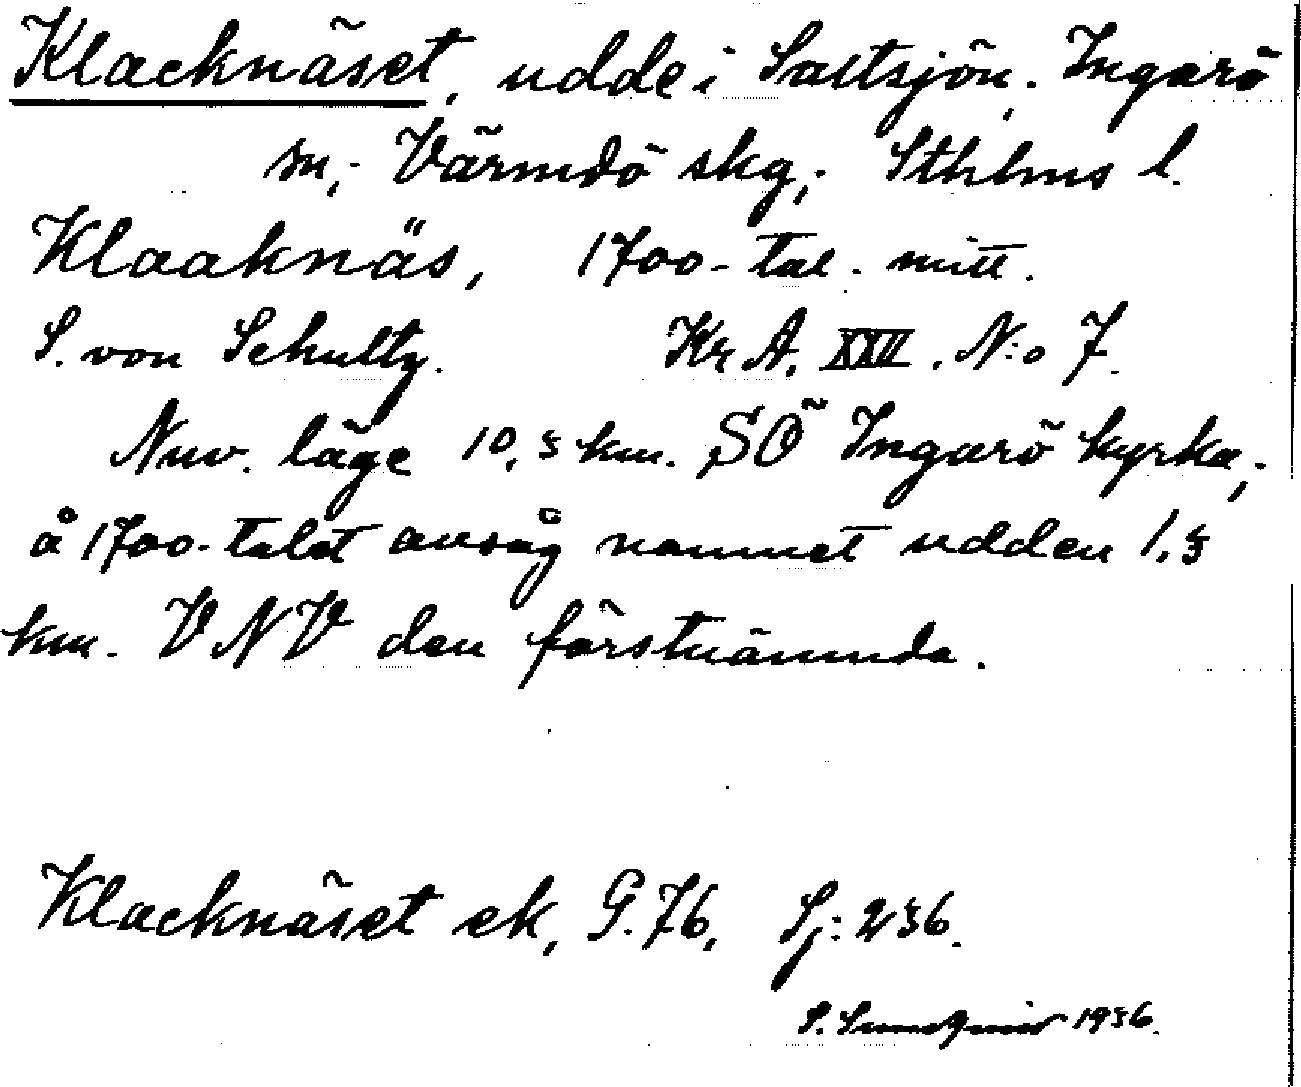 Klacknäset, udde i Saltsjön; Ingarö
sn; Värmdö skg; Sthlms l.
Klaaknäs, 1700-tal. mitt.
S. von Schultz. Kr A. XXII. N:o 7.
Nuv. läge 10,5 km. SÖ Ingarö kyrka;
å 1700-talet avsåg namnet udden 1,5
km. VNV den förstnämnda.
Klacknäset ek, G. 76, Sj: 256.
S. 1936.